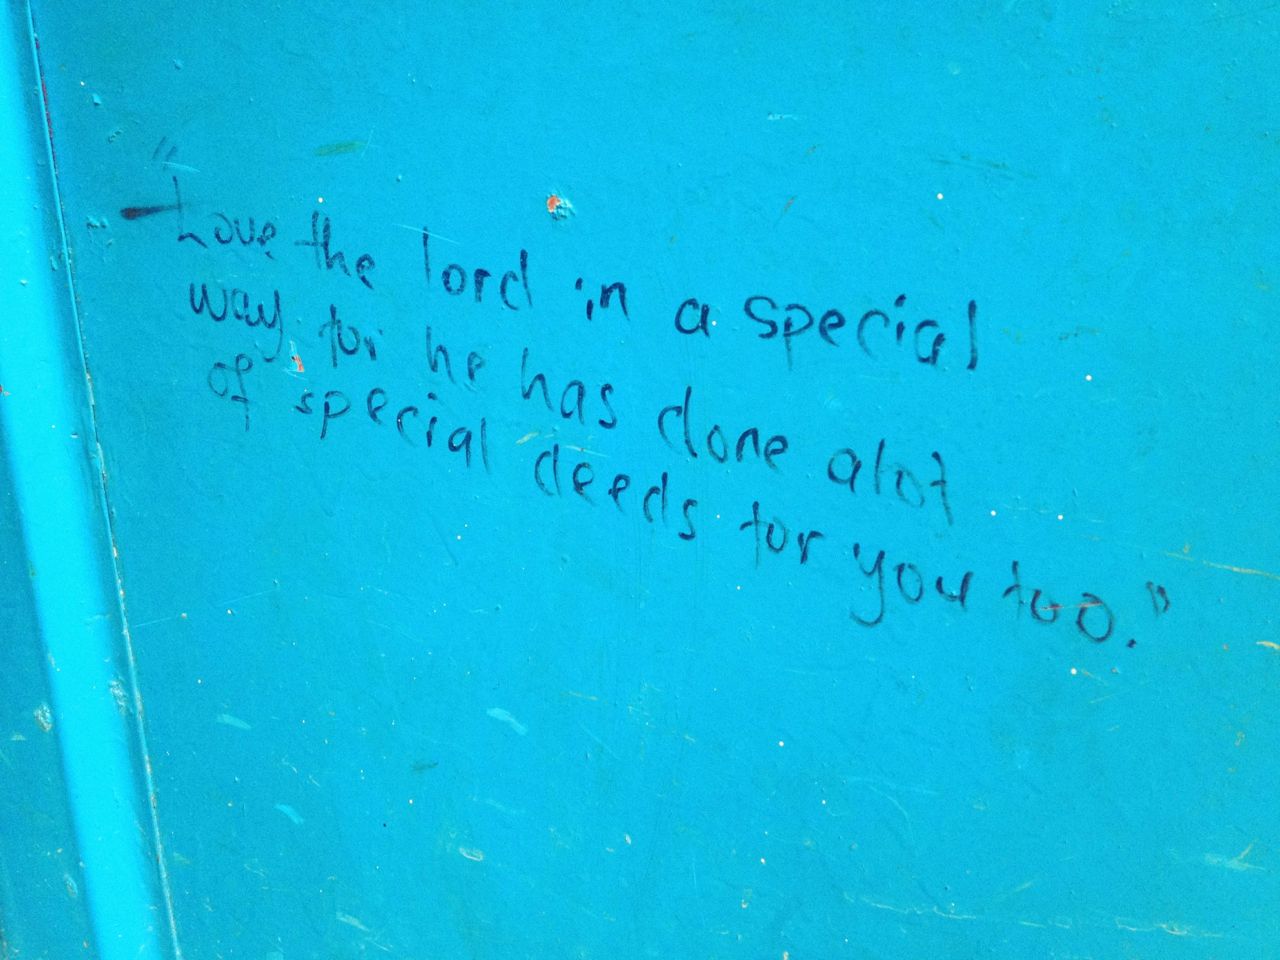 "Love the lord in a special
way for he has done alot
of special deeds for you too."